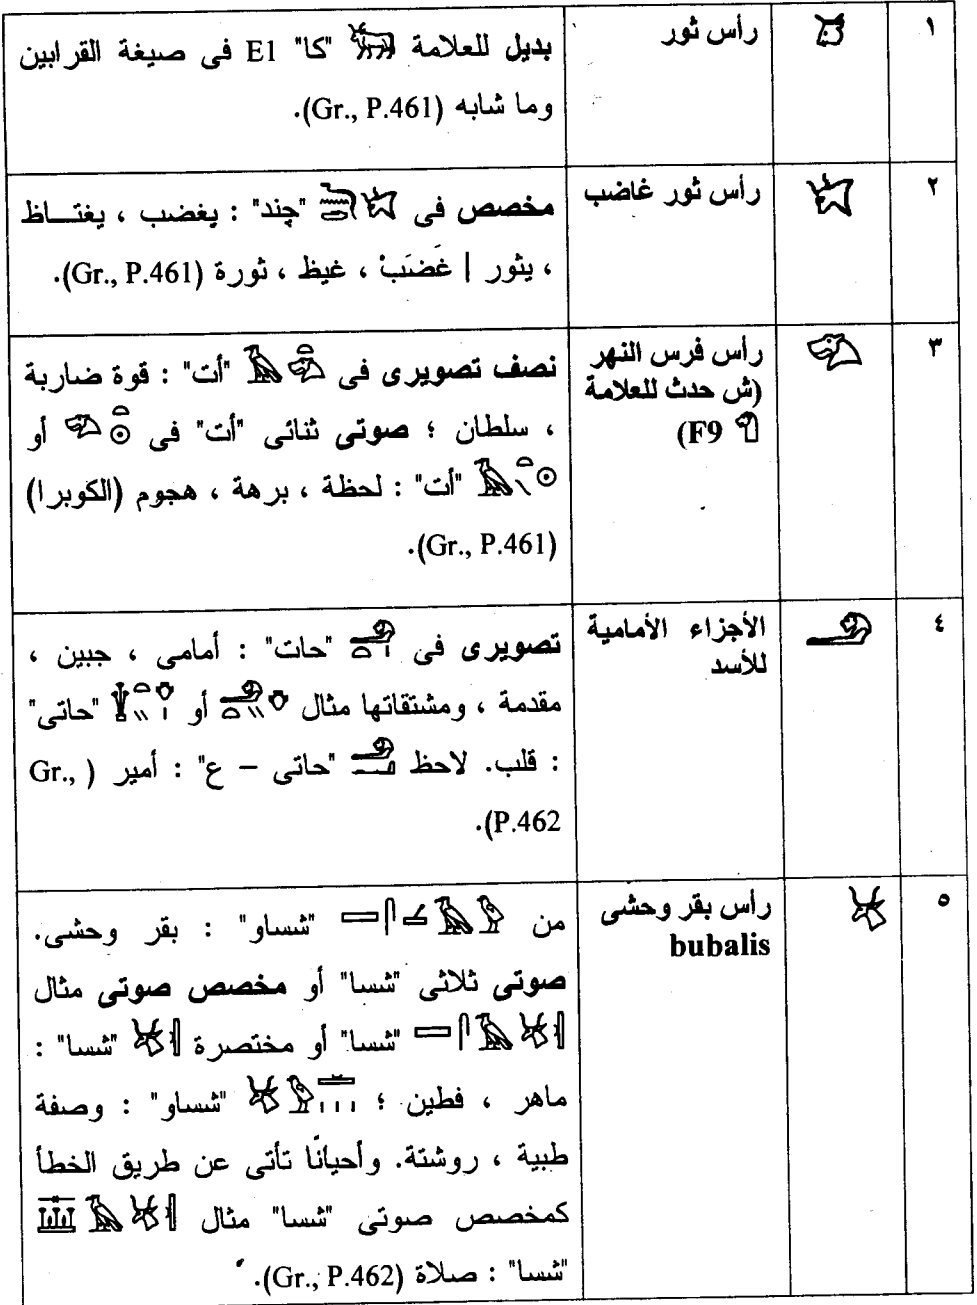 ١
رأس ثور
بديل للعلامة 𓃒 "كا" E1 فى صيغة القرابين
وما شابه (Gr., P.461).
٢
رأس ثور غاضب
مخصص فى "چند" : يغضب ، يغتـــاظ
، يثور | غَضَبْ ، غيظ ، ثورة (Gr., P.461).
٣
رأس فرس النهر
(ش حدث للعلامة
F9 𓄋)
نصف تصويرى فى "أت" : قوة ضاربة
، سلطان ؛ صوتى ثنائى "أت" فى أو
"أت" : لحظة ، برهة ، هجوم (الكوبرا)
(Gr., P.461).
٤
الأجزاء الأمامية
للأسد
تصويرى فى "حات" : أمامى ، جبين ،
مقدمة ، ومشتقاتها مثال أو "حاتى"
: قلب. لاحظ "حاتى – ع" : أمير ( Gr.,
P.462).
٥
رأس بقر وحشى
bubalis
من "شساو" : بقر وحشى.
صوتى ثلاثى "شسا" أو مخصص صوتى مثال
"شسا" أو مختصرة "شسا" :
ماهر ، فطين ؛ "شساو" : وصفة
طبية ، روشتة. وأحيانًا تأتى عن طريق الخطأ
كمخصص صوتى "شسا" مثال
"شسا" : صلاة (Gr., P.462).